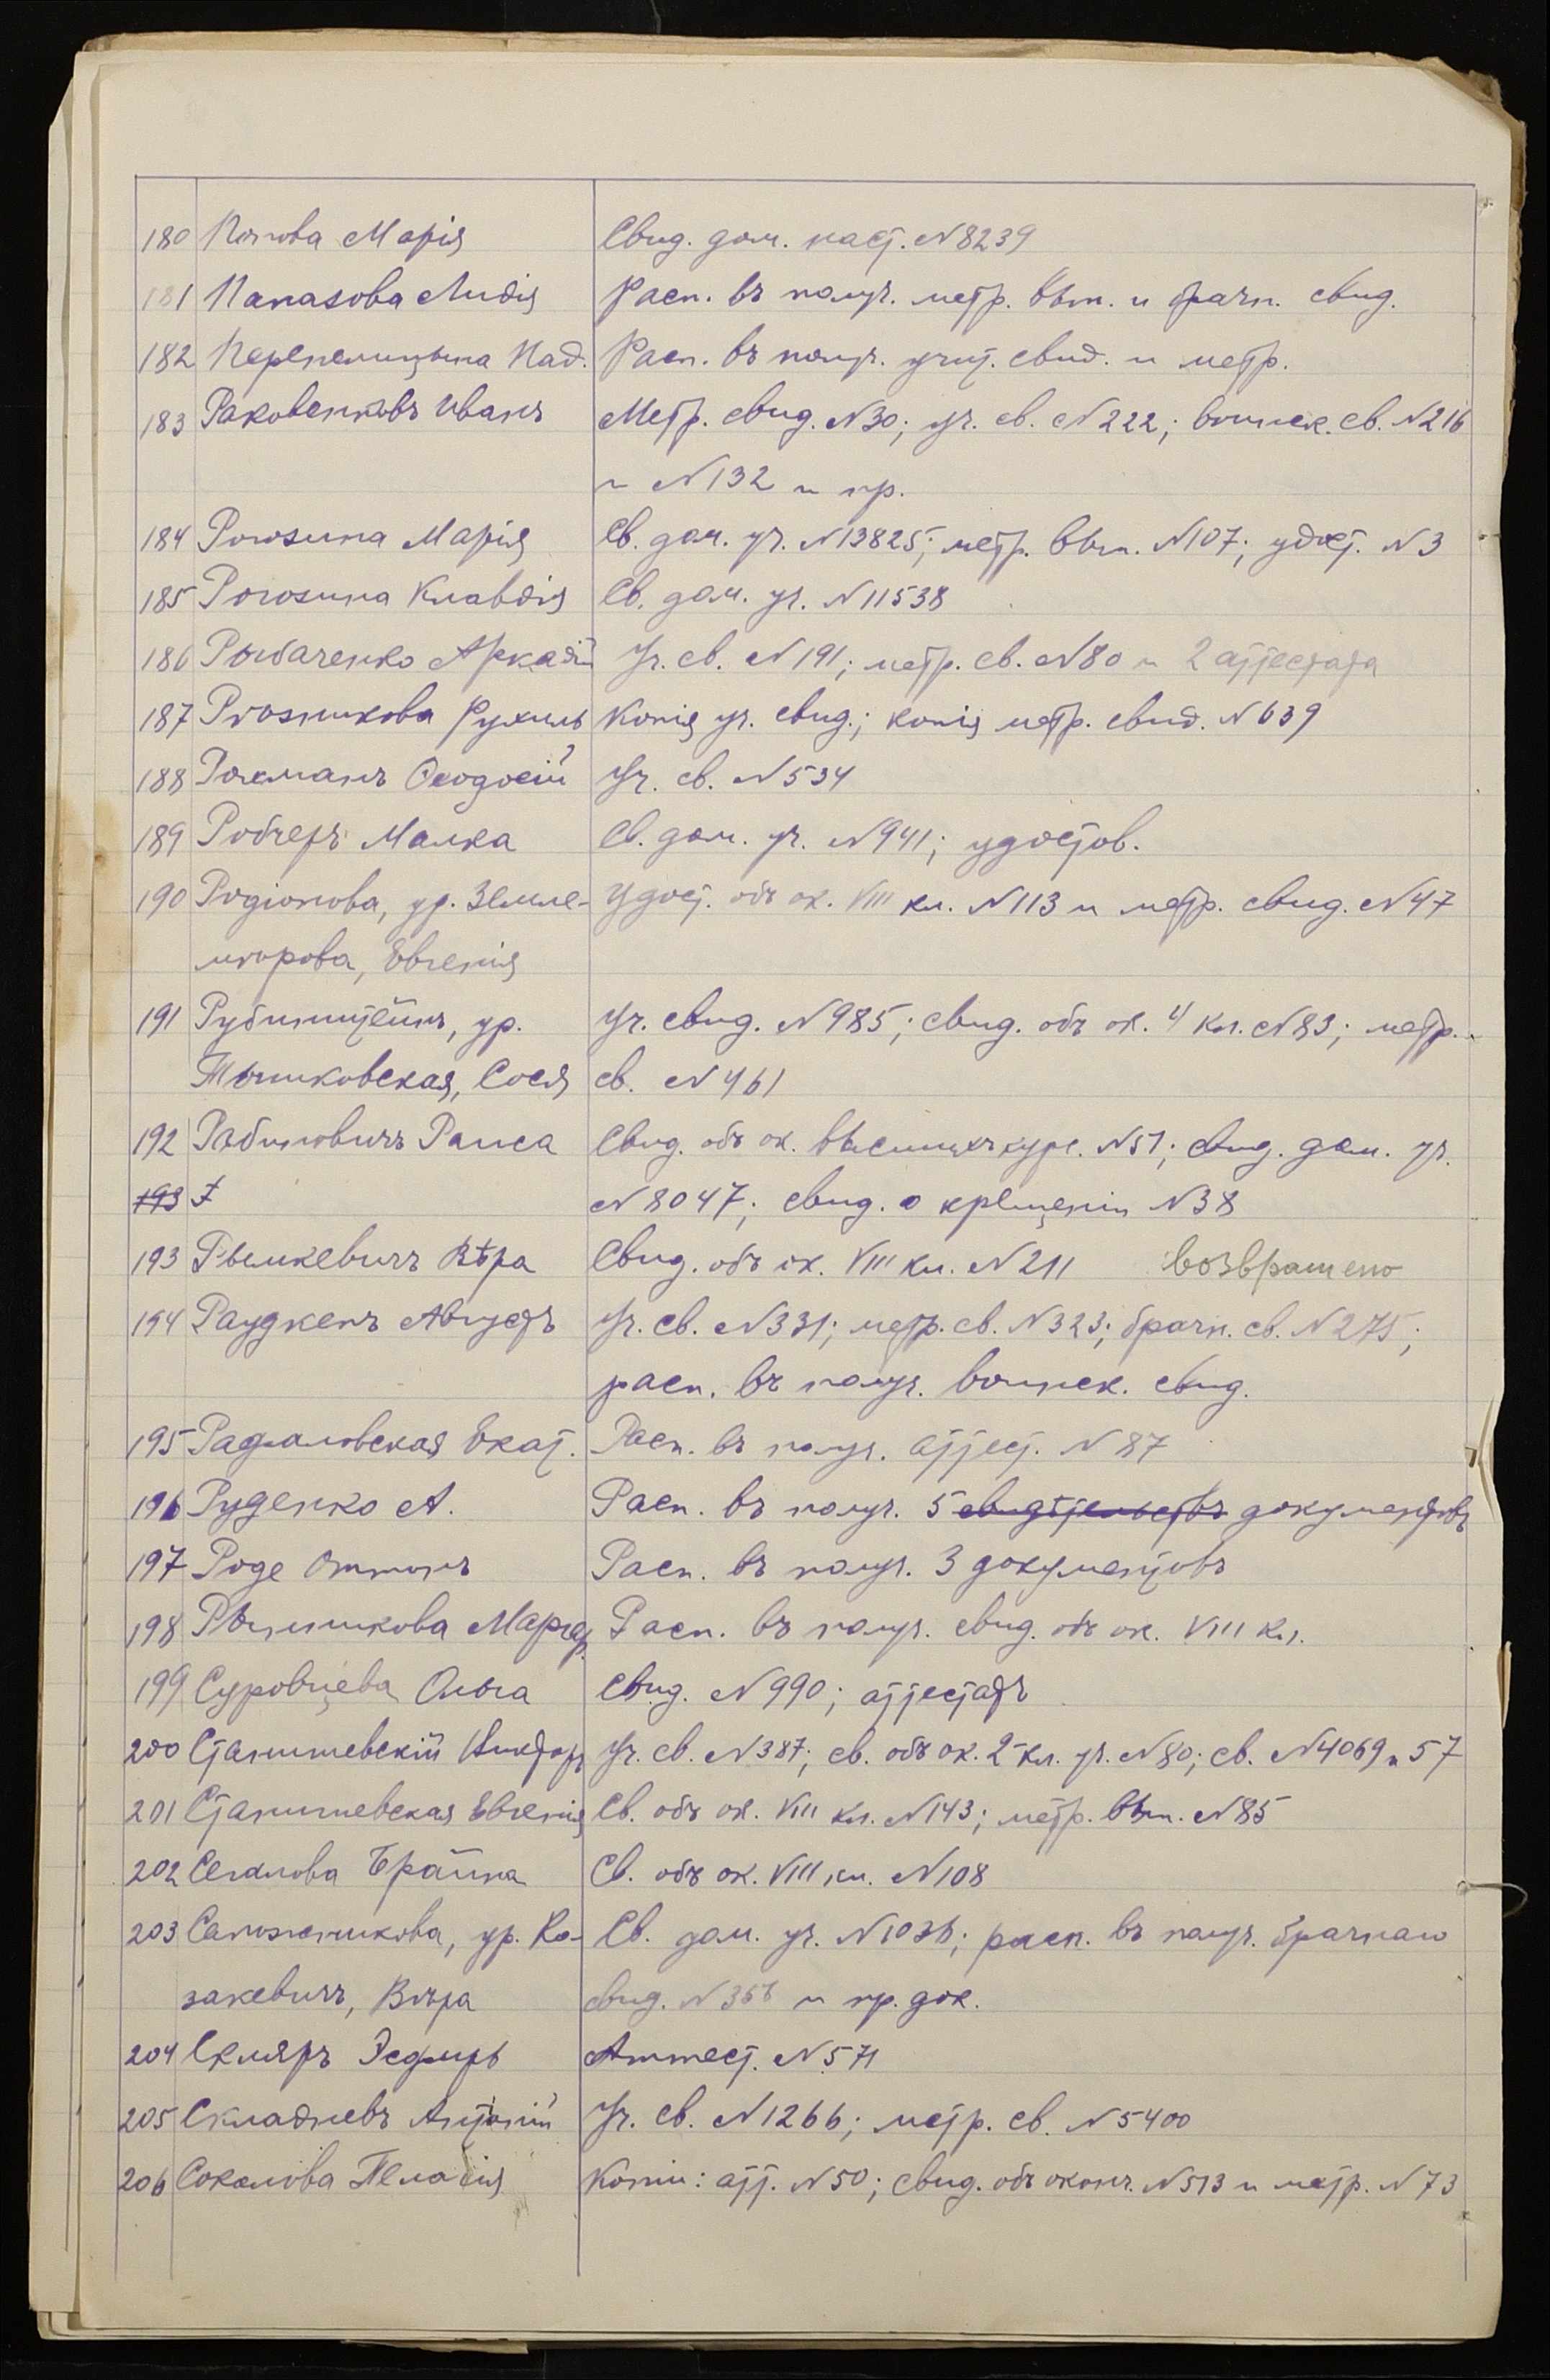 180 Попова Марія Свид. дом. наст. №8239
181 Папазова Лидія Расп. въ получ. метр. вып. и брачн. свид.
182 Перепелицына Над. Расп. въ получ. учит. свид. и метр.
183 Раковенковъ Иванъ Метр. свид. №30; уч. св. №222; воинск. св. №216
и №132 и пр.
184 Рогозина Марія Св. дом. уч. №13825; метр. вып. №107; удост. №3
185 Рогозина Клавдія Св. дом. уч. №11538
186 Рыбаченко Аркадій Уч. св. №191; метр. св. №80 и 2 аттестата
187 Рогозникова Рухиль Копія уч. свид.; копія метр. свид. №639
188 Рохманъ Ѳеодосій Уч. св. №534
189 Робчеръ Малка Св. дом. уч. №941; удостов.
190 Родіонова, ур. Земле- Удост. объ ок. VIII кл. №113 и метр. свид. №47
мѣрова, Евгенія
191 Рубинштейнъ, ур. Уч. свид. №985; свид. объ ок. 4 кл. №83; метр.
Тышковская, Сося св. №461
192 Рабиновичъ Раиса Свид. объ ок. высшихъ курс. №51; свид. дом. уч.
193 №8047; свид. о крещеніи №38
193 Рымкевичъ Вѣра Свид. объ ок. VIII кл. №211 возвращено
194 Раудкепъ Августъ Уч. св. №331; метр. св. №323; брачн. св. №275;
расп. въ получ. воинск. свид.
195 Рафаловская Екат. Расп. въ получ. аттест. №87
196 Руденко А. Расп. въ получ. 5 свидѣтельствъ документовъ
197 Роде Оттонъ Расп. въ получ. 3 документовъ
198 Рѣшникова Маргар. Расп. въ получ. свид. объ ок. VIII кл.
199 Суровцева Ольга Свид. №990; аттестатъ
200 Станишевскій Никфоръ Уч. св. №387; св. объ ок. 2 кл. уч. №80; св. №4069 и 57
201 Станишевская Евгенія Св. объ ок. VIII кл. №143; метр. вып. №85
202 Сегалова Брайна Св. объ ок. VIII кл. №108
203 Сапожникова, ур. Ка- Св. дом. уч. №1036; расп. въ получ. брачнаго
закевичъ, Вѣра свид. №356 и пр. док.
204 Скляръ Эсфирь Аттест. №571
205 Складневъ Антоній Уч. св. №1266; метр. св. №5400
206 Соколова Пелагія Копіи: атт. №50; свид. объ оконч. №513 и метр. №73